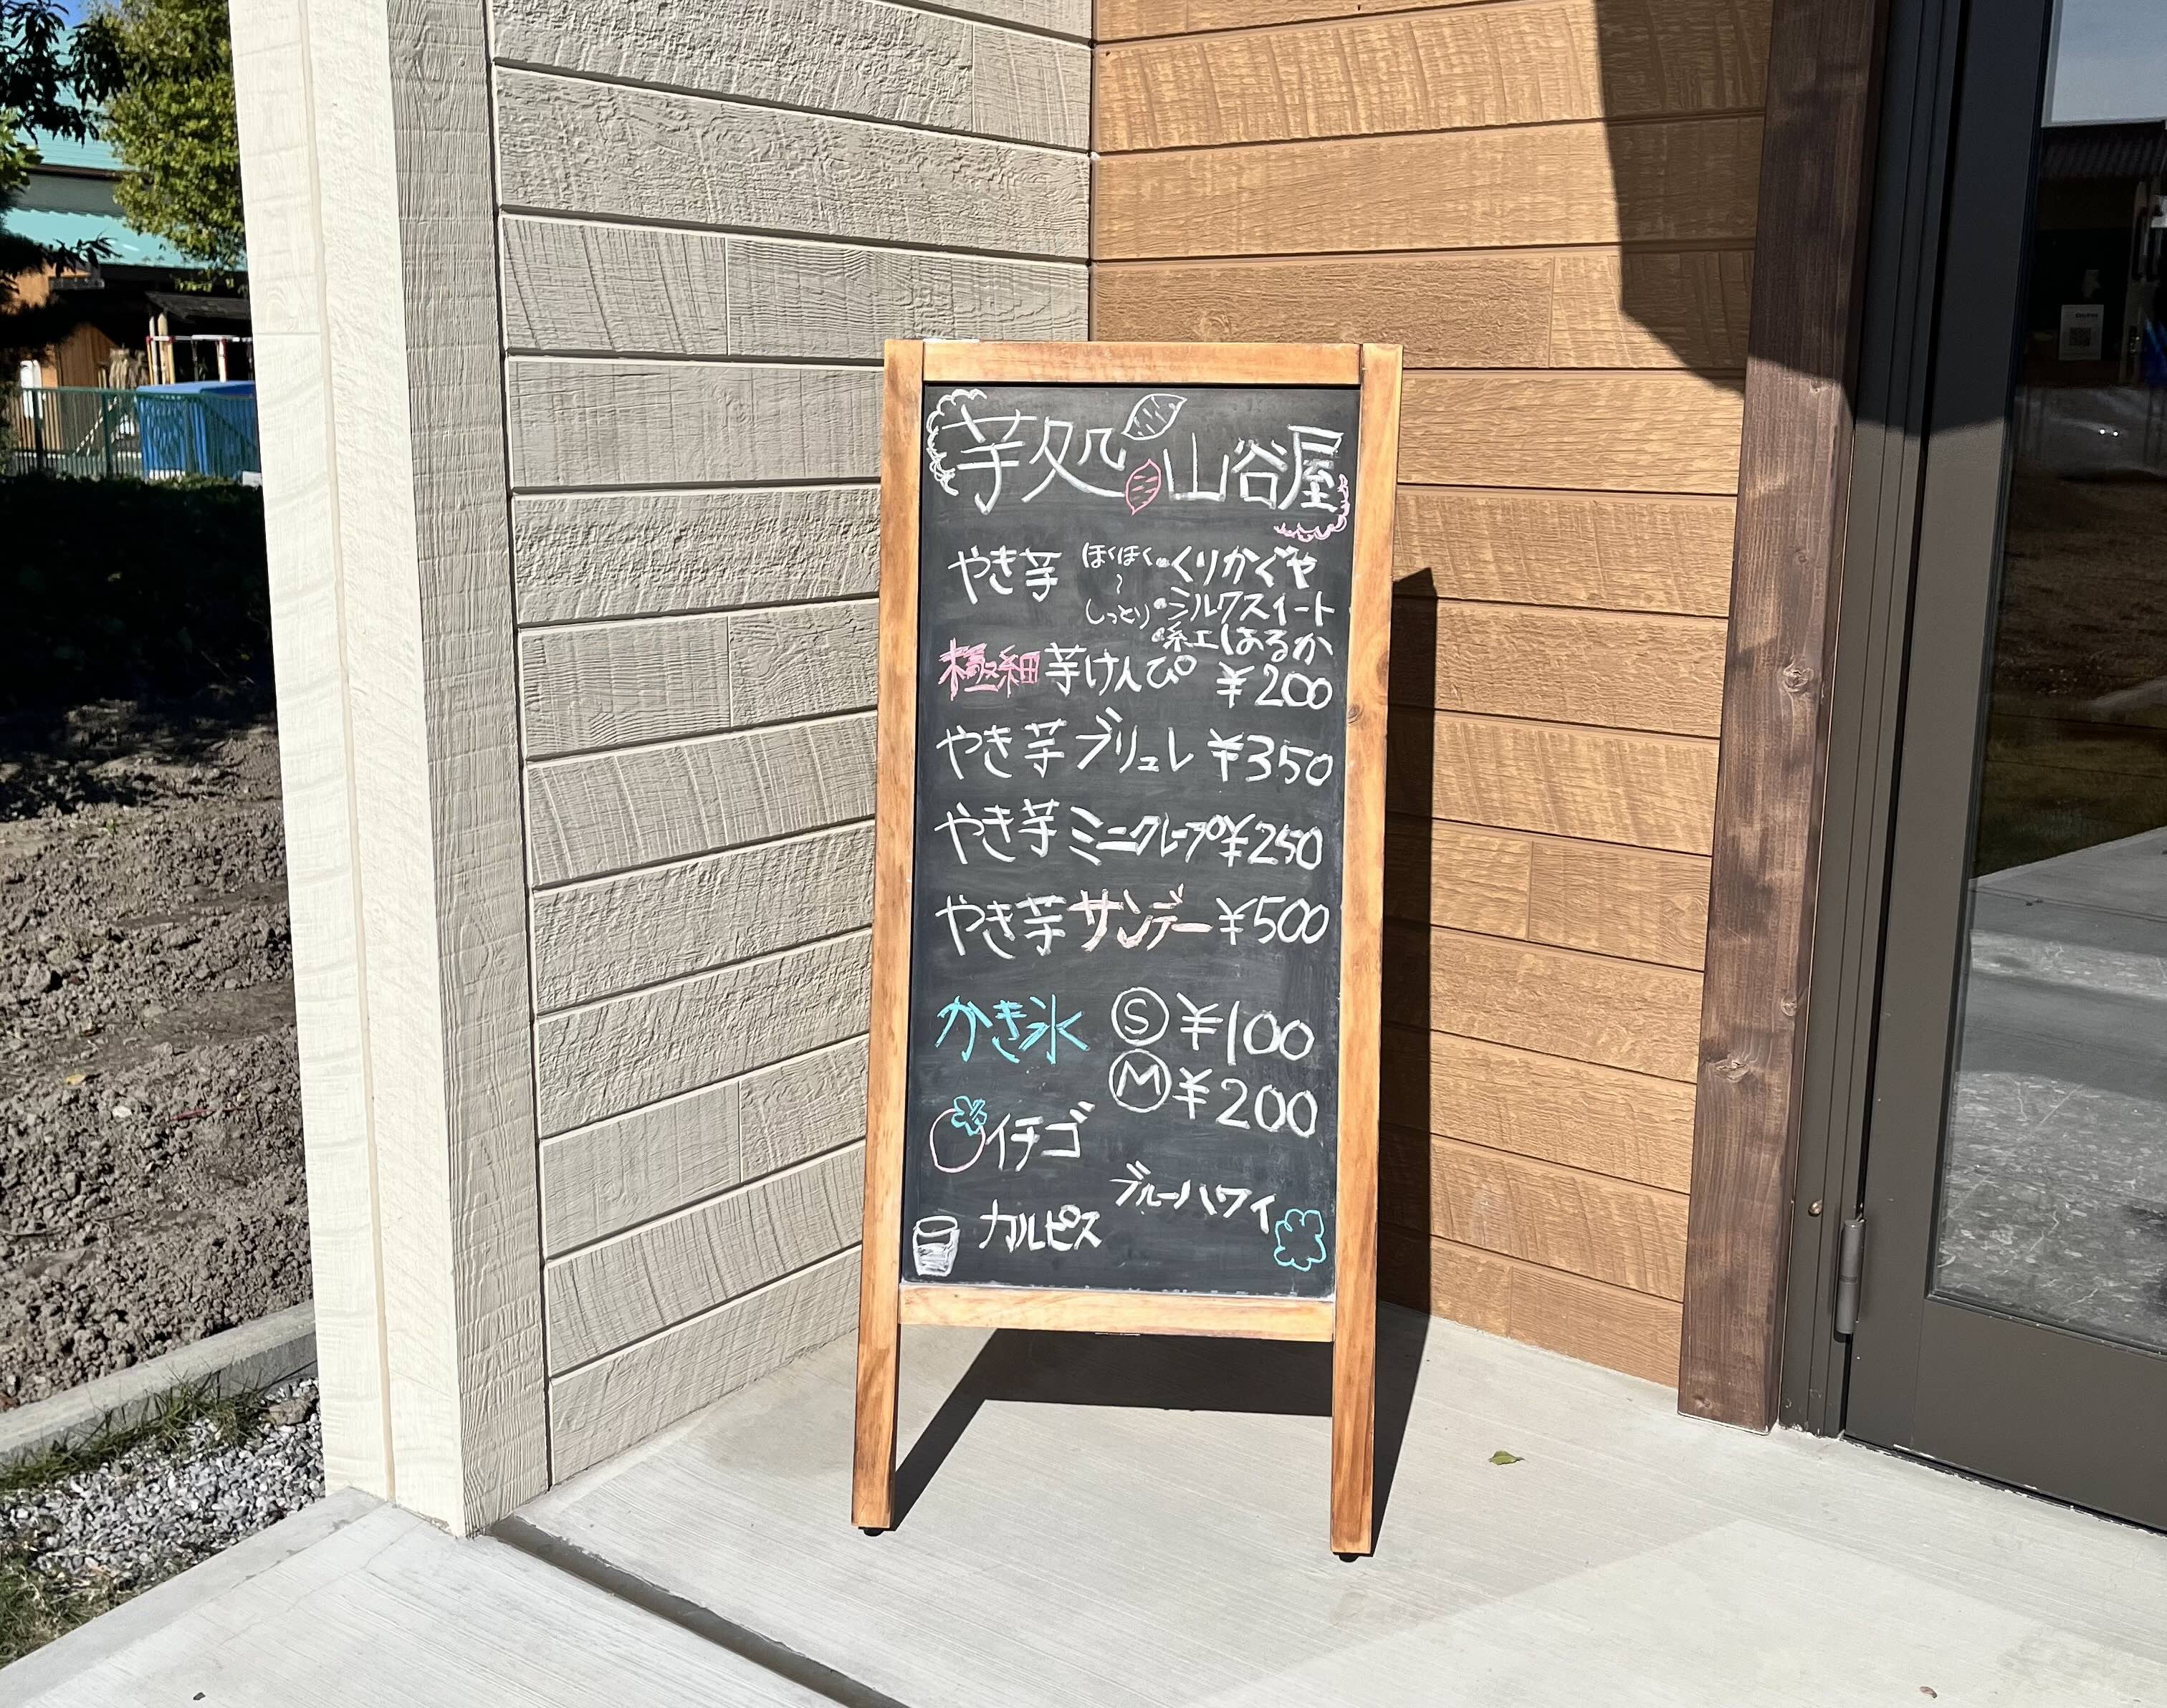 芋処 山谷屋
やき芋 ほくほく ・くりかぐや
〜
しっとり ・シルクスイート
・紅はるか
極細芋けんぴ ¥200
やき芋ブリュレ ¥350
やき芋ミニクレープ ¥250
やき芋サンデー ¥500
かき氷 Ⓢ ¥100
Ⓜ ¥200
イチゴ
ブルーハワイ
カルピス